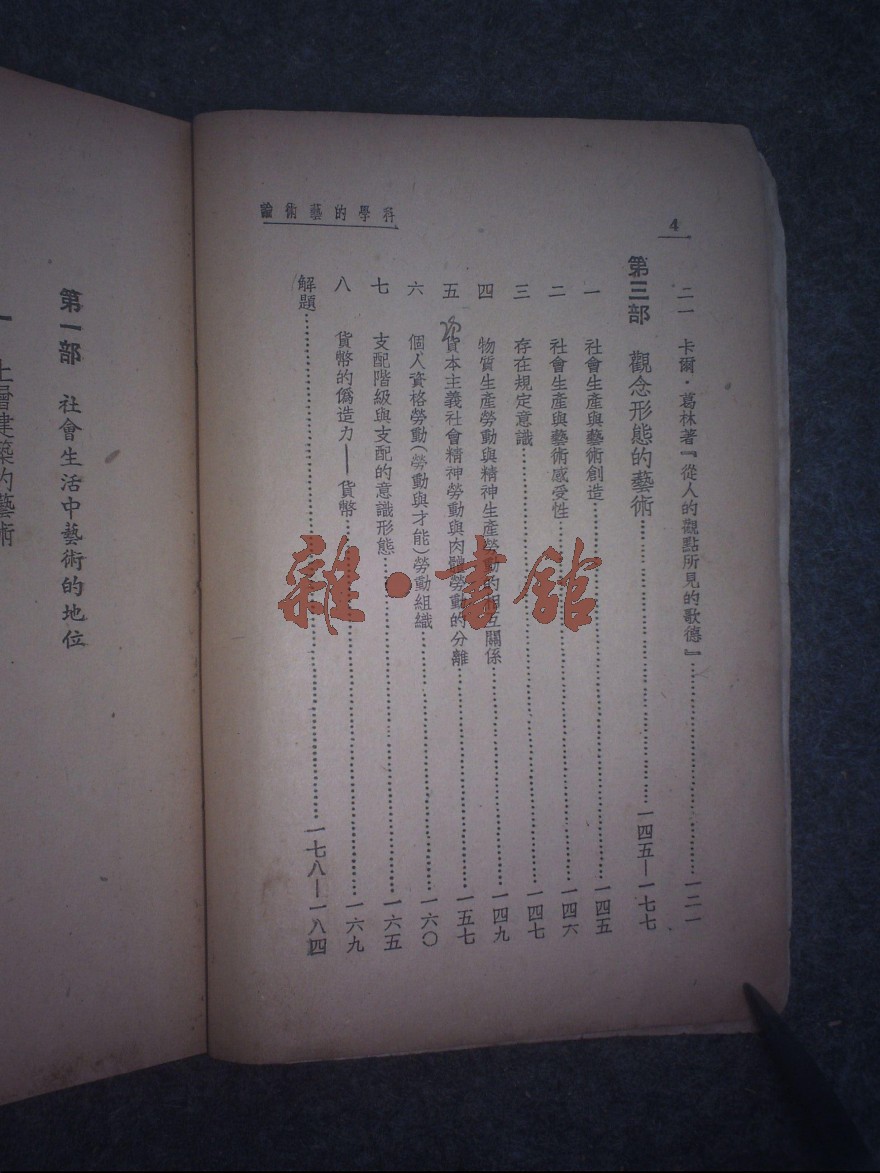 科學的藝術論
4
二一 卡爾·葛林著『從人的觀點所見的歌德』……一二一
第三部 觀念形態的藝術……一四五—一七七
一 社會生產與藝術創造……一四五
二 社會生產與藝術感受性……一四六
三 存在規定意識……一四七
四 物質生產勞動與精神生產勞動的相互關係……一四九
五 資本主義社會精神勞動與肉體勞動的分離……一五七
六 個人資格勞動(勞動與才能)勞動組織……一六〇
七 支配階級與支配的意識形態……一六五
八 貨幣的僞造力——貨幣……一六九
解題……一七八—一八四
第一部 社會生活中藝術的地位
一 上層建築的藝術
雜·書館